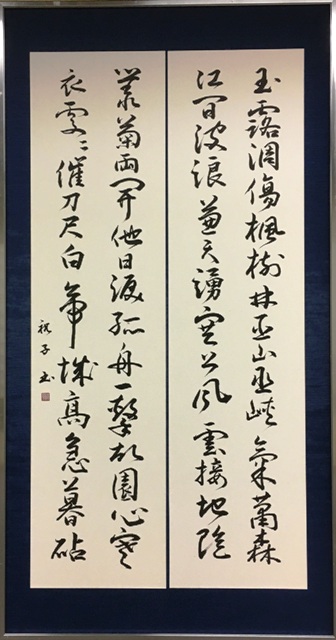 玉露凋傷楓樹林巫山巫峽氣蕭森
江間波浪兼天湧塞上風雲接地陰
叢菊兩開他日淚孤舟一繫故園心寒
衣處々催刀尺白帝城高急暮砧
祝子書